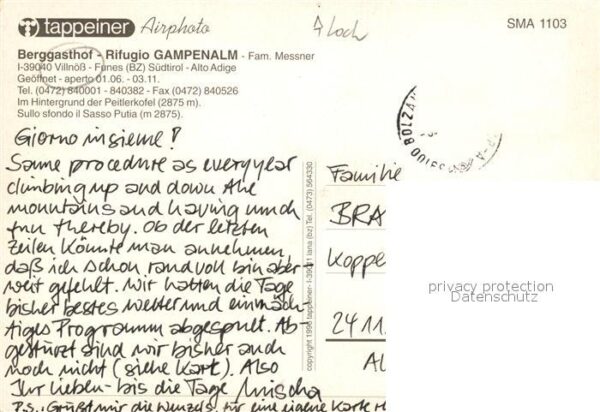 tappeiner Airphoto
SMA 1103
Berggasthof - Rifugio GAMPENALM - Fam. Messner
I-39040 Villnöß - Funes (BZ) Südtirol - Alto Adige
Geöffnet - aperto 01.06. - 03.11.
Tel. (0472) 840001 - 840382 - Fax (0472) 840526
Im Hintergrund der Peitlerkofel (2875 m).
Sullo sfondo il Sasso Putia (m 2875).
Giorno insieme!
Same procedure as every year
climbing up and down the
mountains and having much
fun thereby. Ob der letzten
Zeilen könnte man annehmen,
daß ich schon randvoll bin aber
weit gefehlt. Wir hatten die Tage
bisher bestes Wetter und ein mäch-
tiges Programm abgespult. Ab-
gestürzt sind wir bisher auch
noch nicht (siehe Karte). Also
Ihr Lieben - bis die Tage Mischa
P.S.: Grüßt mir die Wenzels, für eine eigene Karte
copyright 1996 tappeiner - I-39011 lana (bz) Tel. (0473) 564330
Familie
BRA
Koppe
24 11
privacy protection
Datenschutz